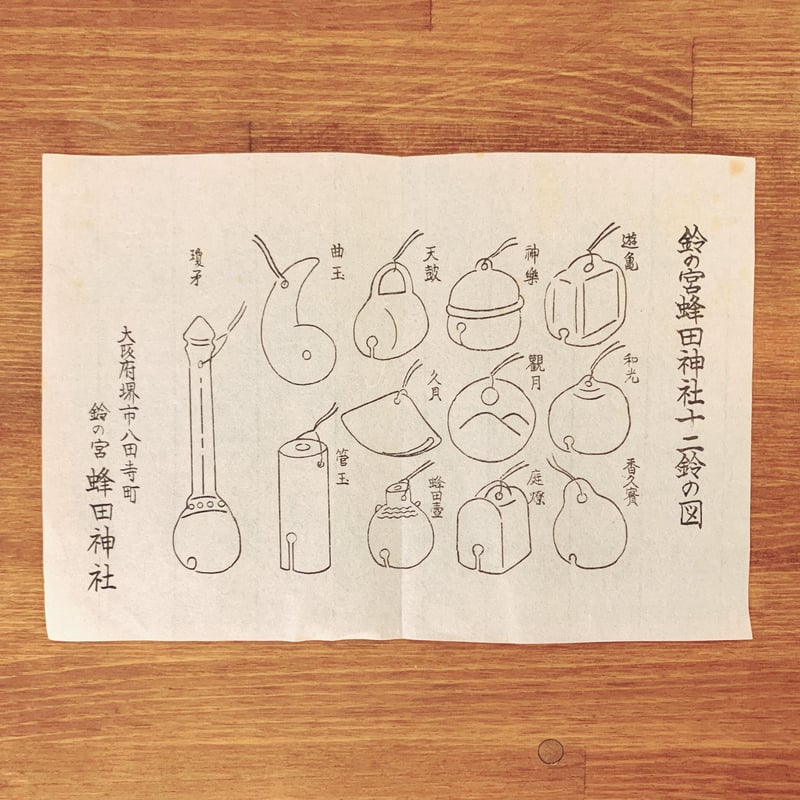 鈴の宮蜂田神社十二鈴の図
遊亀
和光
香久賽
神樂
觀月
庭燎
天鼓
久貝
蜂田壺
曲玉
管玉
瓊矛
大阪府堺市八田寺町
鈴の宮 蜂田神社